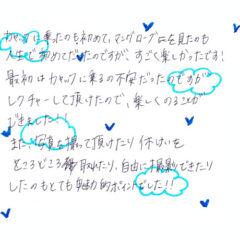 カヤックに乗ったのも初めて、マングローブ林を見たのも
人生で初めてだったのですが、すごく楽しかったです!
最初はカヤックに乗るの不安だったのですが
レクチャーして頂けたので、楽しくのることが
できました!!
また、写真を撮って頂けたり 休けいを
ところどころ 取れたり、自由に撮影できたり
したのもとても魅力的ポイントでした!!